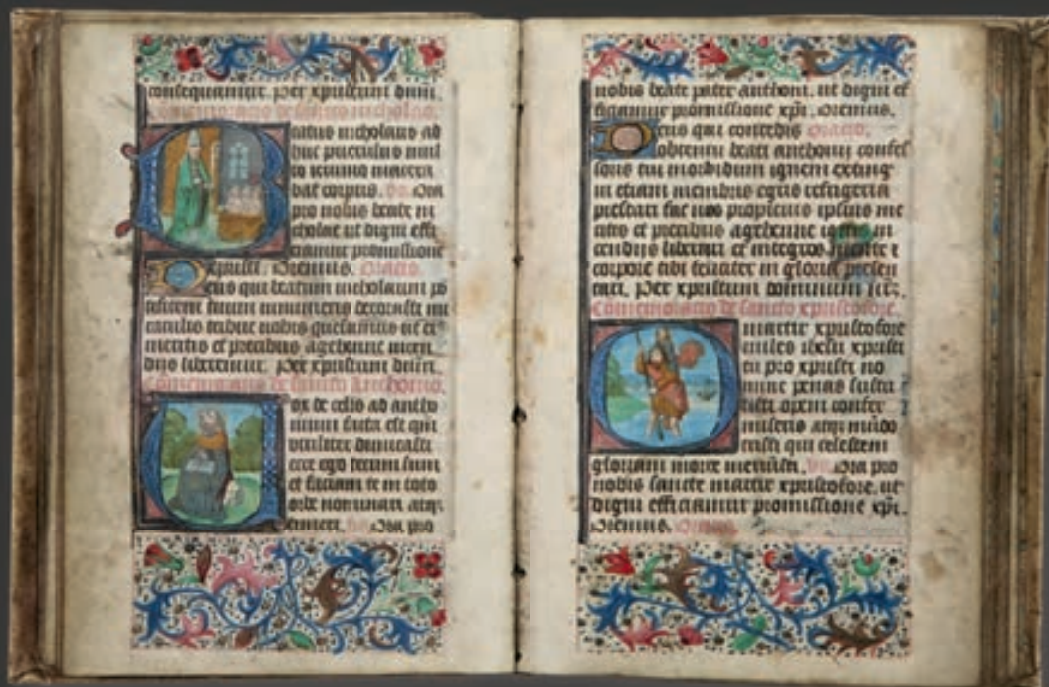 consequamur. Per xpristum dnm.
Commemoracio de sancto nicholao.
Beatus nicholaus ad
huc puerulus mul
to ieiunio macera
bat corpus. Ora
pro nobis beate ni
cholae ut digni effi
ciamur promissione
xpristi. Oremus. Oracio.
Deus qui beatum nicholaum po
tificem tuum innumeris decorasti mi
raculis tribue nobis quesumus ut ei
meritis et precibus a gehenne incen
diis liberemur. Per xpristum dnm.
Commemoracio de sancto Anthonio.
Vox de celis ad antho
nium facta est qm
viriliter dimicasti
ecce ego tecum sum
et faciam te in toto
orbe nominari atq
Ora pro
nobis beate pater anthoni. ut digni ef
ficiamur promissione xpi. Oremus.
Deus qui concedis Oracio.
obtentu beati anthonii confes
soris tui morbidum ignem exting
ui etiam membris egris refrigeria
prestari fac nos propicius ipsius me
ritis et precibus a gehenne ignis in
cendiis liberari et integros mente et
corpore tibi feliciter in gloria presen
tari. Per xpristum dominum
Commemoracio de sancto xpristofore.
martir xpristofore
miles ihesu xpristi
qui pro xpristi no
mine penas susti
nuisti opem confer
miseris atq mundo
tristi qui celestem
gloriam morte meruisti. Ora pro
nobis sancte martir xpristofore. ut
digni efficiamur promissione xpi.
Oremus. Oracio.